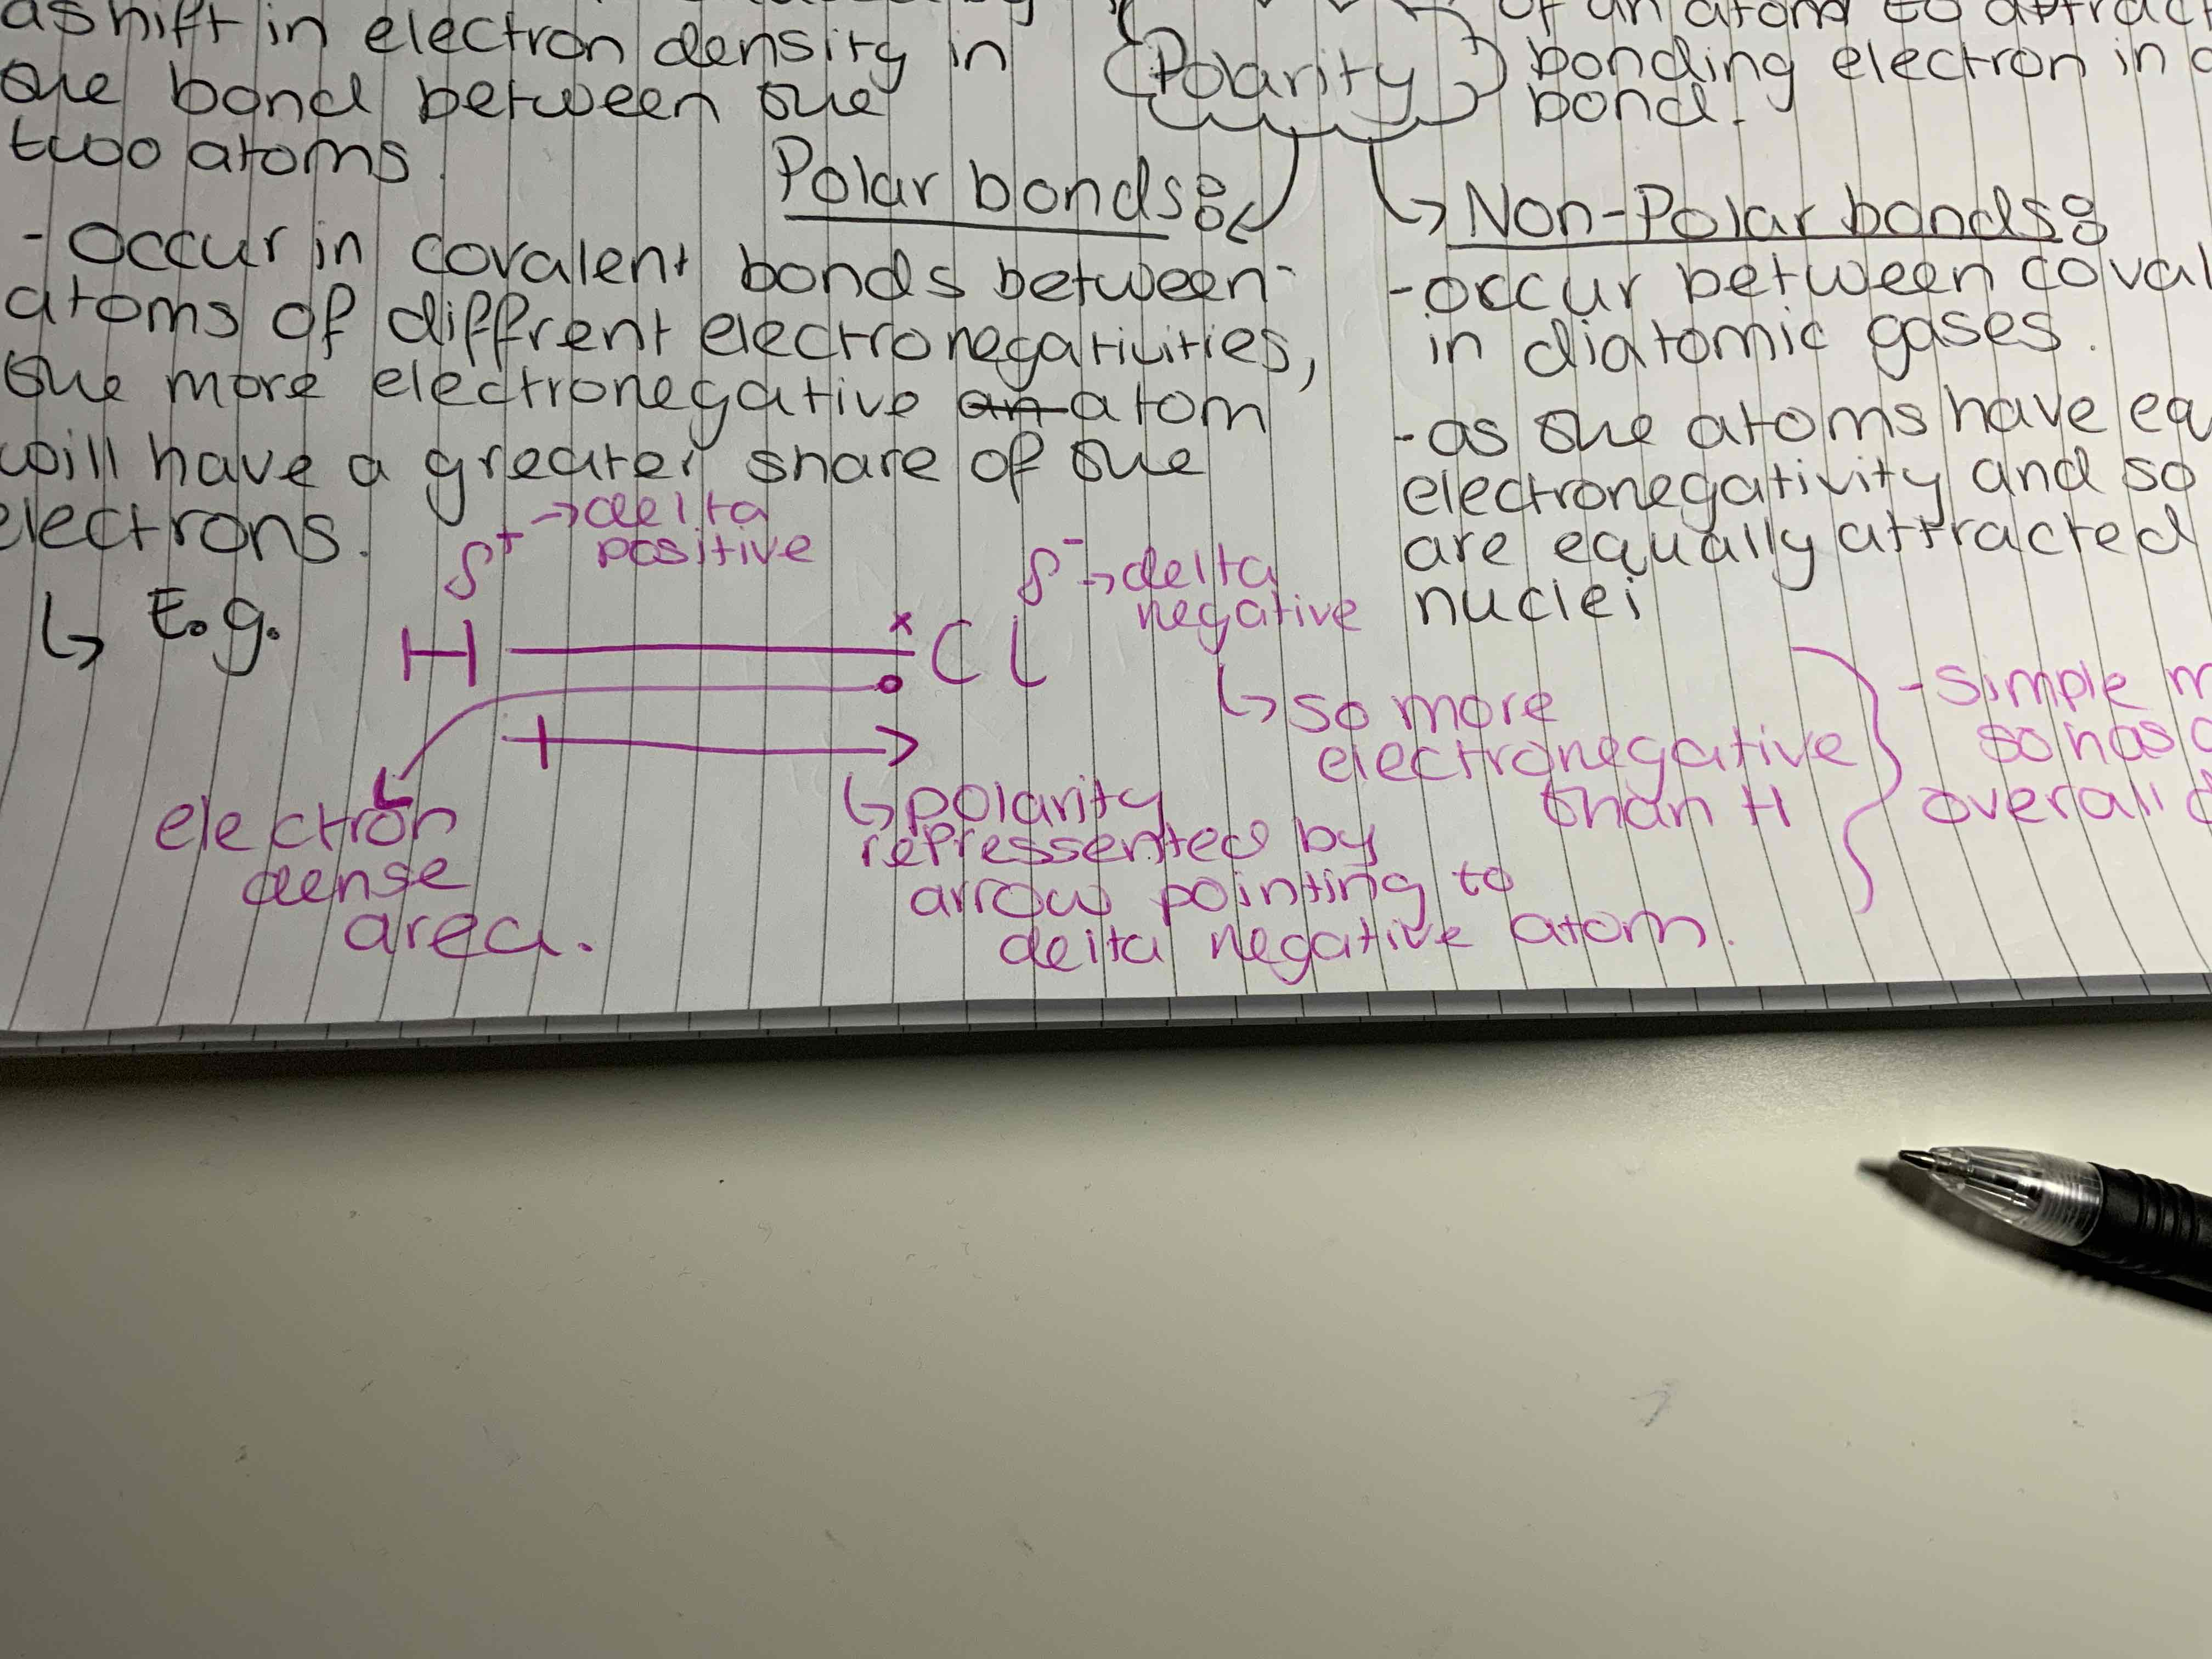 a shift in electron density in
the bond between the
two atoms.
Polarity
of an atom to attract
bonding electron in
bond.
Polar bonds:
- occur in covalent bonds between
atoms of diffrent electronegativities,
the more electronegative an atom
will have a greater share of the
electrons.
↳ E.g.
δ+ → delta
positive
δ- → delta
negative
H Cl
x
↳ so more
electronegative
than H
electron
dense
area.
↳ polarity
repressented by
arrow pointing to
delta negative atom.
↳ Non-Polar bonds:
- occur between
in diatomic gases.
- as the atoms have
electronegativity and so
are equally attracted
nuclei
- simple
so has
overall